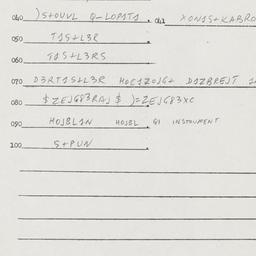 040 )S+OUVL Q-LOP1T1. 041 XON1S+KABRO
050 T1S+L3R.
060 T1S+L3RS
070 D3RT1S+L3R HOE1ZOJG+ D1ZBREJT
080 $ZEJG83RAJ $ )=ZEJG83XC
090 HOJBL1N HOJBL QI INSTOUMENT
100 S+PUN.